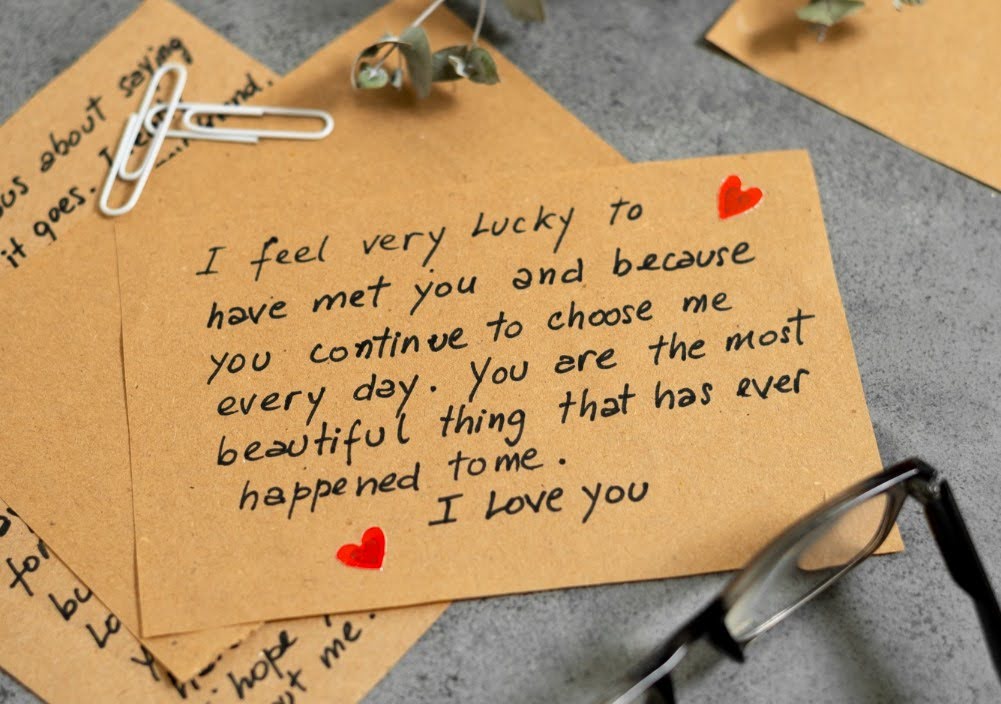 about saying
it goes. I
I feel very Lucky to
have met you and because
you continue to choose me
every day. You are the most
beautiful thing that has ever
happened to me.
I Love you
for
hope
me.